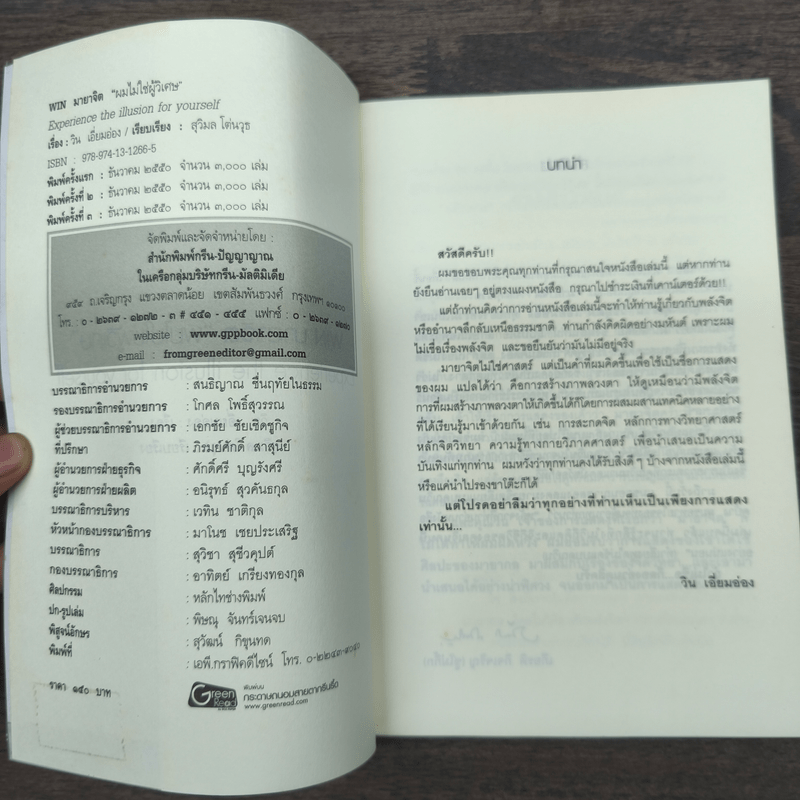 WIN มายาจิต "ผมไม่ใช่ผู้วิเศษ"
Experience the illusion for yourself
เรื่อง : วิน เอี่ยมอ่อง / เรียบเรียง : สุวิมล โต่นวุธ
ISBN : 978-974-13-1266-5
พิมพ์ครั้งแรก : ธันวาคม ๒๕๕๐ จำนวน ๓,๐๐๐ เล่ม
พิมพ์ครั้งที่ ๒ : ธันวาคม ๒๕๕๐ จำนวน ๓,๐๐๐ เล่ม
พิมพ์ครั้งที่ ๓ : ธันวาคม ๒๕๕๐ จำนวน ๓,๐๐๐ เล่ม
จัดพิมพ์และจัดจำหน่ายโดย :
สำนักพิมพ์กรีน-ปัญญาญาณ
ในเครือกลุ่มบริษัทกรีน-มัลติมีเดีย
๙๕๙ ถ.เจริญกรุง แขวงตลาดน้อย เขตสัมพันธวงศ์ กรุงเทพฯ ๑๐๑๐๐
โทร. : ๐ - ๒๖๓๙ - ๑๒๗๒ - ๓ # ๔๔๑ - ๔๔๕ แฟกซ์ : ๐ - ๒๖๓๙ -
website : www.gppbook.com
e-mail : fromgreeneditor@gmail.com
บรรณาธิการอำนวยการ : สนธิญาณ ชื่นฤทัยในธรรม
รองบรรณาธิการอำนวยการ : โกศล โพธิ์สุวรรณ
ผู้ช่วยบรรณาธิการอำนวยการ : เอกชัย ชัยเชิดชูกิจ
ที่ปรึกษา : ภิรมย์ศักดิ์ สาสุนีย์
ผู้อำนวยการฝ่ายธุรกิจ : ศักดิ์ศรี บุญรังศรี
ผู้อำนวยการฝ่ายผลิต : อนิรุทธ์ สุวคันธกุล
บรรณาธิการบริหาร : เวทิน ชาติกุล
หัวหน้ากองบรรณาธิการ : มาโนช เชยประเสริฐ
บรรณาธิการ : สุวิชา สุชีวคุปต์
กองบรรณาธิการ : อาทิตย์ เกรียงทองกุล
ศิลปกรรม : หลักไทช่างพิมพ์
ปก-รูปเล่ม : พิษณุ จันทร์เจนจบ
พิสูจน์อักษร : สุวัฒน์ กิขุนทด
พิมพ์ที่ : เอพี.กราฟิคดีไซน์ โทร. ๐-๒๒๔๓-๙๐๔๐
ราคา ๑๔๐ บาท
Green Read
พิมพ์บน
กระดาษถนอมสายตากรีนรี้ด
www.greenread.com
บทนำ
สวัสดีครับ!!
ผมขอขอบพระคุณทุกท่านที่กรุณาสนใจหนังสือเล่มนี้ แต่หากท่าน
ยังยืนอ่านเฉยๆ อยู่ตรงแผงหนังสือ กรุณาไปชำระเงินที่เคาน์เตอร์ด้วย!!
แต่ถ้าท่านคิดว่าการอ่านหนังสือเล่มนี้จะทำให้ท่านรู้เกี่ยวกับพลังจิต
หรืออำนาจลึกลับเหนือธรรมชาติ ท่านกำลังคิดผิดอย่างมหันต์ เพราะผม
ไม่เชื่อเรื่องพลังจิต และขอยืนยันว่ามันไม่มีอยู่จริง
มายาจิตไม่ใช่ศาสตร์ แต่เป็นคำที่ผมคิดขึ้นเพื่อใช้เป็นชื่อการแสดง
ของผม แปลได้ว่า คือการสร้างภาพลวงตา ให้ดูเหมือนว่ามีพลังจิต
การที่ผมสร้างภาพลวงตาให้เกิดขึ้นได้ก็โดยการผสมผสานเทคนิคหลายอย่าง
ที่ได้เรียนรู้มาเข้าด้วยกัน เช่น การสะกดจิต หลักการทางวิทยาศาสตร์
หลักจิตวิทยา ความรู้ทางกายวิภาคศาสตร์ เพื่อนำเสนอเป็นความ
บันเทิงแก่ทุกท่าน ผมหวังว่าทุกท่านคงได้รับสิ่งดี ๆ บ้างจากหนังสือเล่มนี้
หรือแค่นำไปรองขาโต๊ะก็ได้
แต่โปรดอย่าลืมว่าทุกอย่างที่ท่านเห็นเป็นเพียงการแสดง
เท่านั้น...
วิน เอี่ยมอ่อง